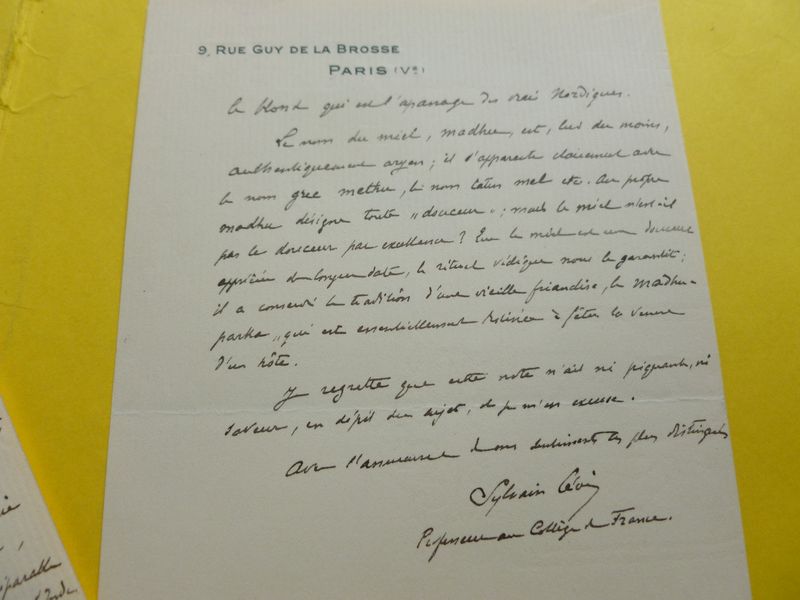 9, RUE GUY DE LA BROSSE
PARIS (Ve)
le blond qui est l'apanage des vrais Nordiques.
Le nom du miel, madhu, est, lui du moins,
authentiquement aryen; il s'apparente clairement avec
le nom grec methu, le nom latin mel etc. Au propre
madhu désigne toute "douceur"; mais le miel n'est-il
pas la douceur par excellence ? Que le miel est une douceur
appréciée de longue date, le rituel védique nous le garantit;
il a conservé la tradition d'une vieille friandise, le madhu-
parka, qui est essentiellement destinée à fêter la venue
d'un hôte.
Je regrette que cette note n'ait ni piquant, ni
saveur, en dépit du sujet, et je m'en excuse.
Avec l'assurance de mes sentiments les plus distingués
Sylvain Lévi
Professeur au Collège de France.